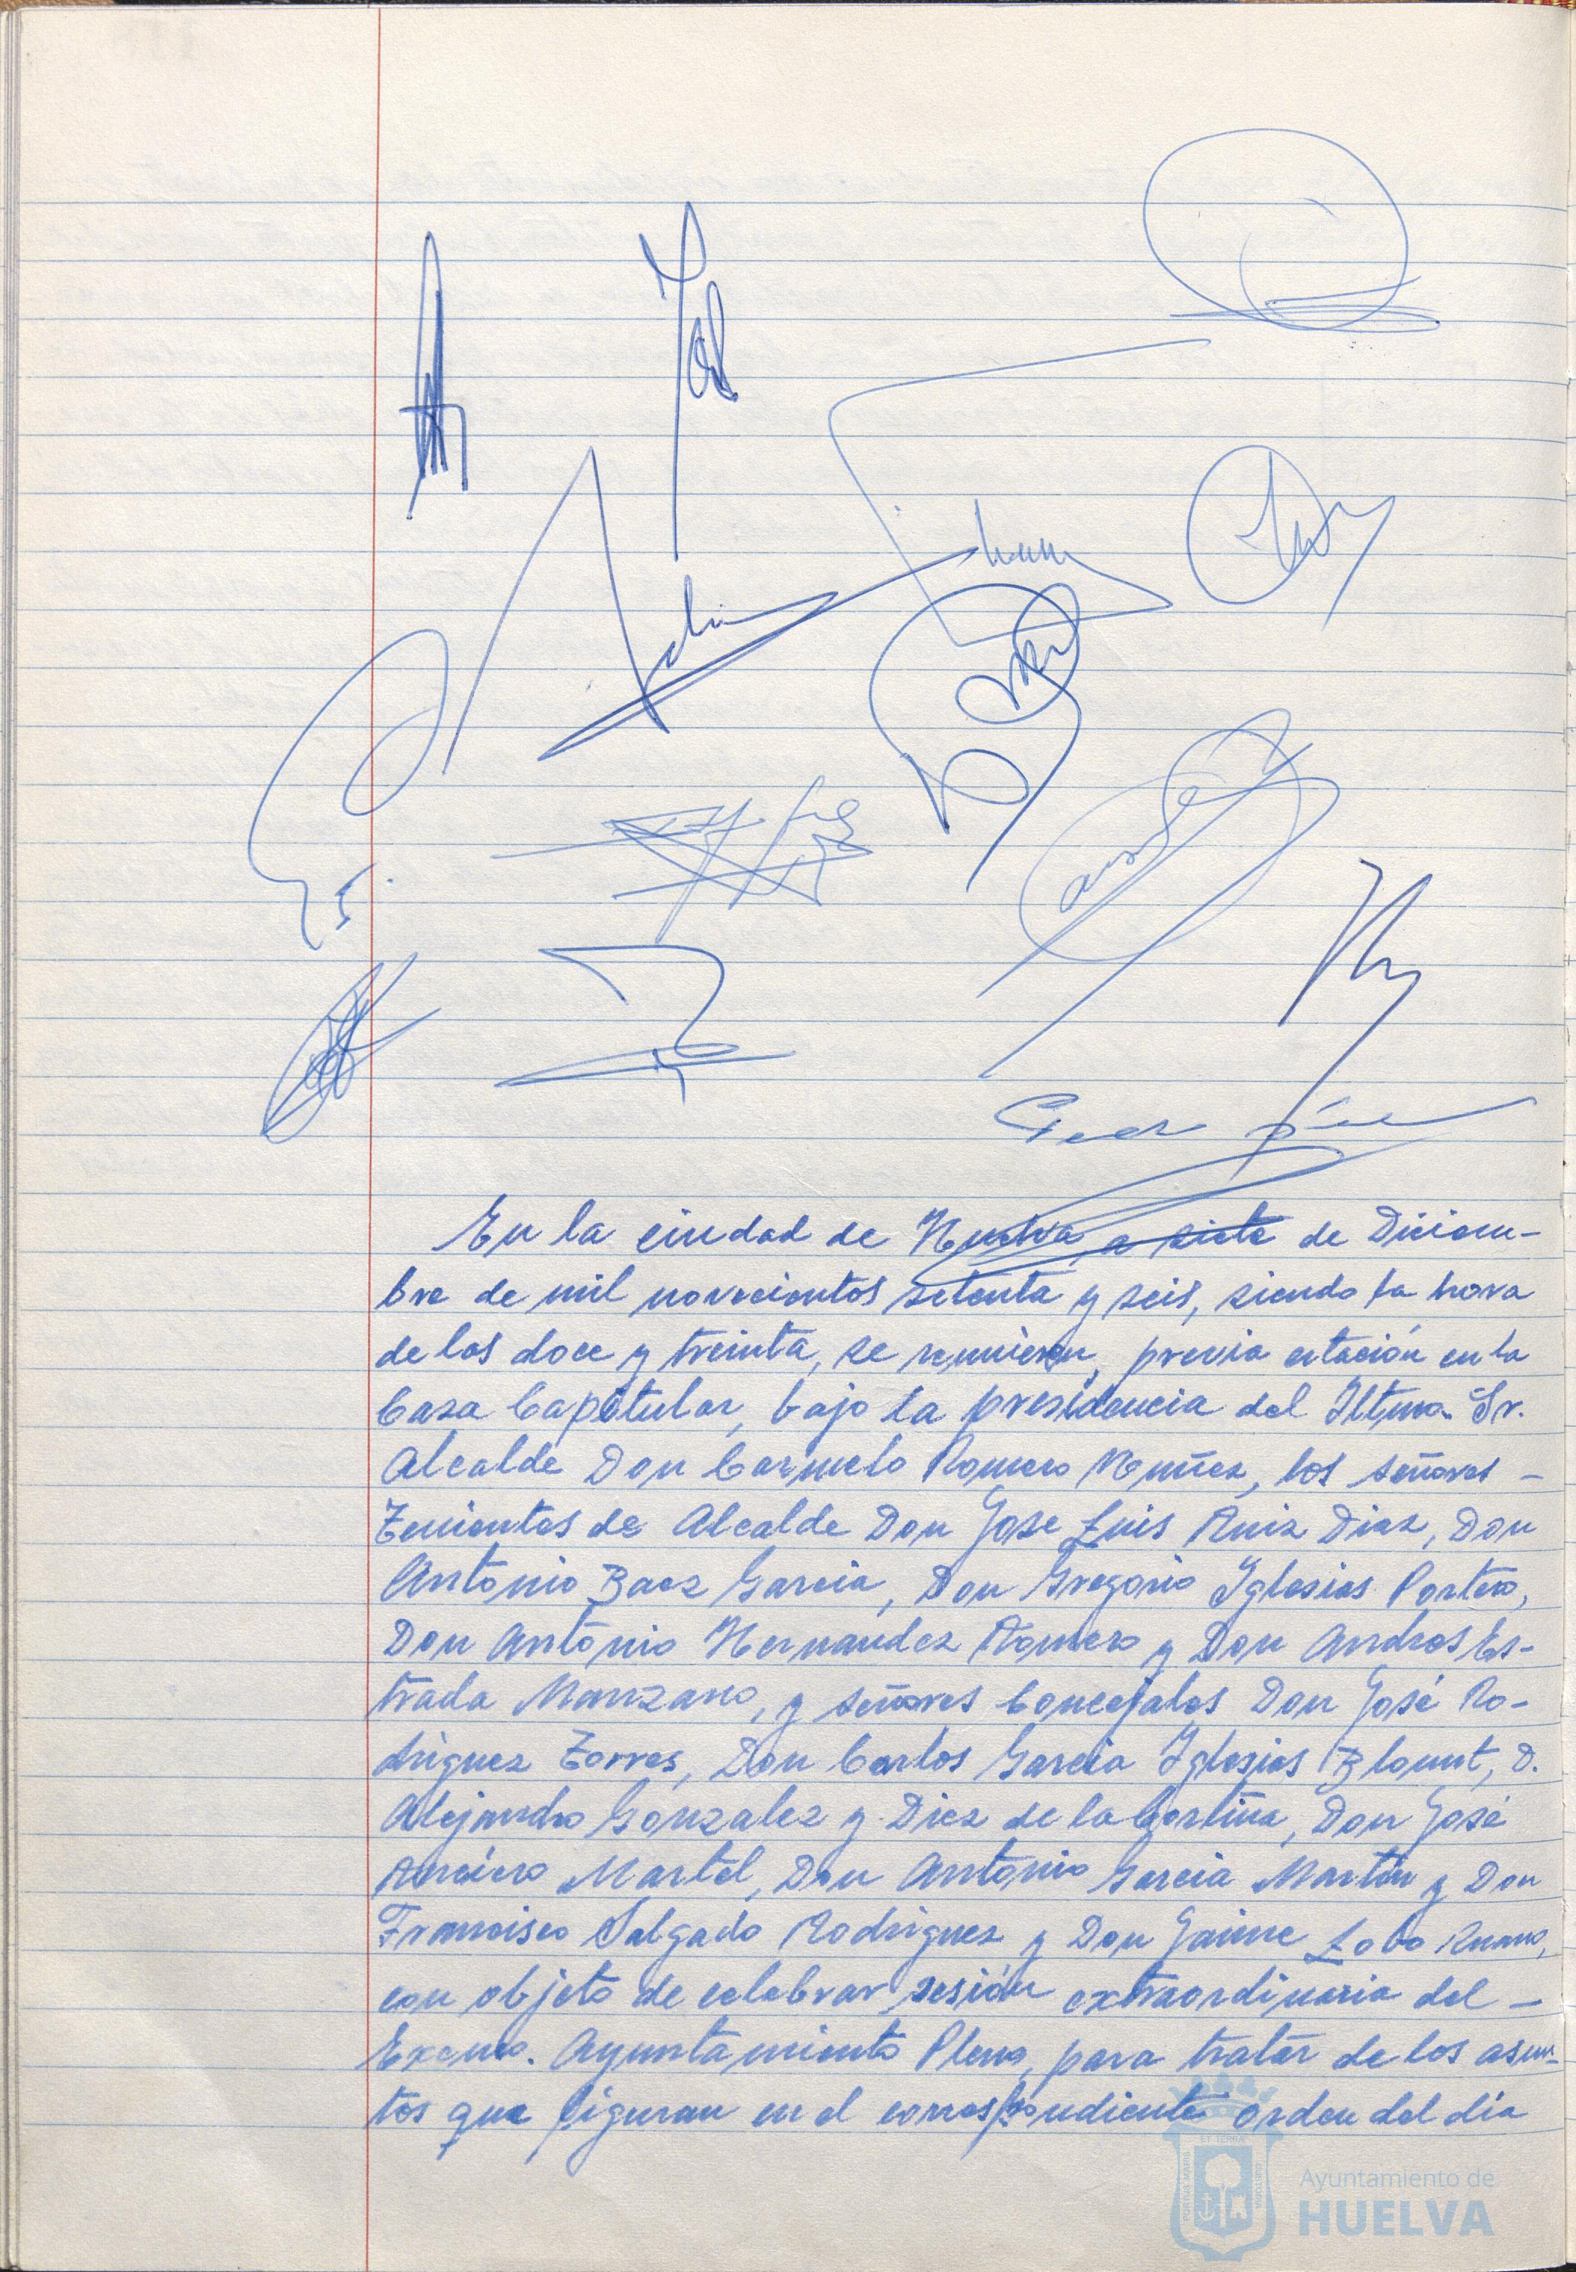 En la ciudad de Huelva, a siete de Diciem-
bre de mil novecientos setenta y seis, siendo la hora
de las doce y treinta, se reunieron, previa citación en la
Casa Capitular, bajo la presidencia del Iltmo. Sr.
Alcalde Don Carmelo Romero Nuñez, los señores -
Tenientes de Alcalde Don Jose Luis Ruiz Diaz, Don
Antonio Baez Garcia, Don Gregorio Iglesias Portero,
Don Antonio Hernandez Romero y Don Andres Es-
trada Manzano, y señores Concejales Don José Ro-
driguez Torres, Don Carlos Garcia Iglesias Blount, D.
Alejandro Gonzalez y Diez de la Cortina, Don José
Martel, Don Antonio Garcia Martin y Don
Francisco Salgado Rodriguez y Don Jaime Lobo
con objeto de celebrar sesión extraordinaria del -
Excmo. Ayuntamiento Pleno, para tratar de los asun-
tos que figuran en el correspondiente orden del dia
Ayuntamiento de
HUELVA